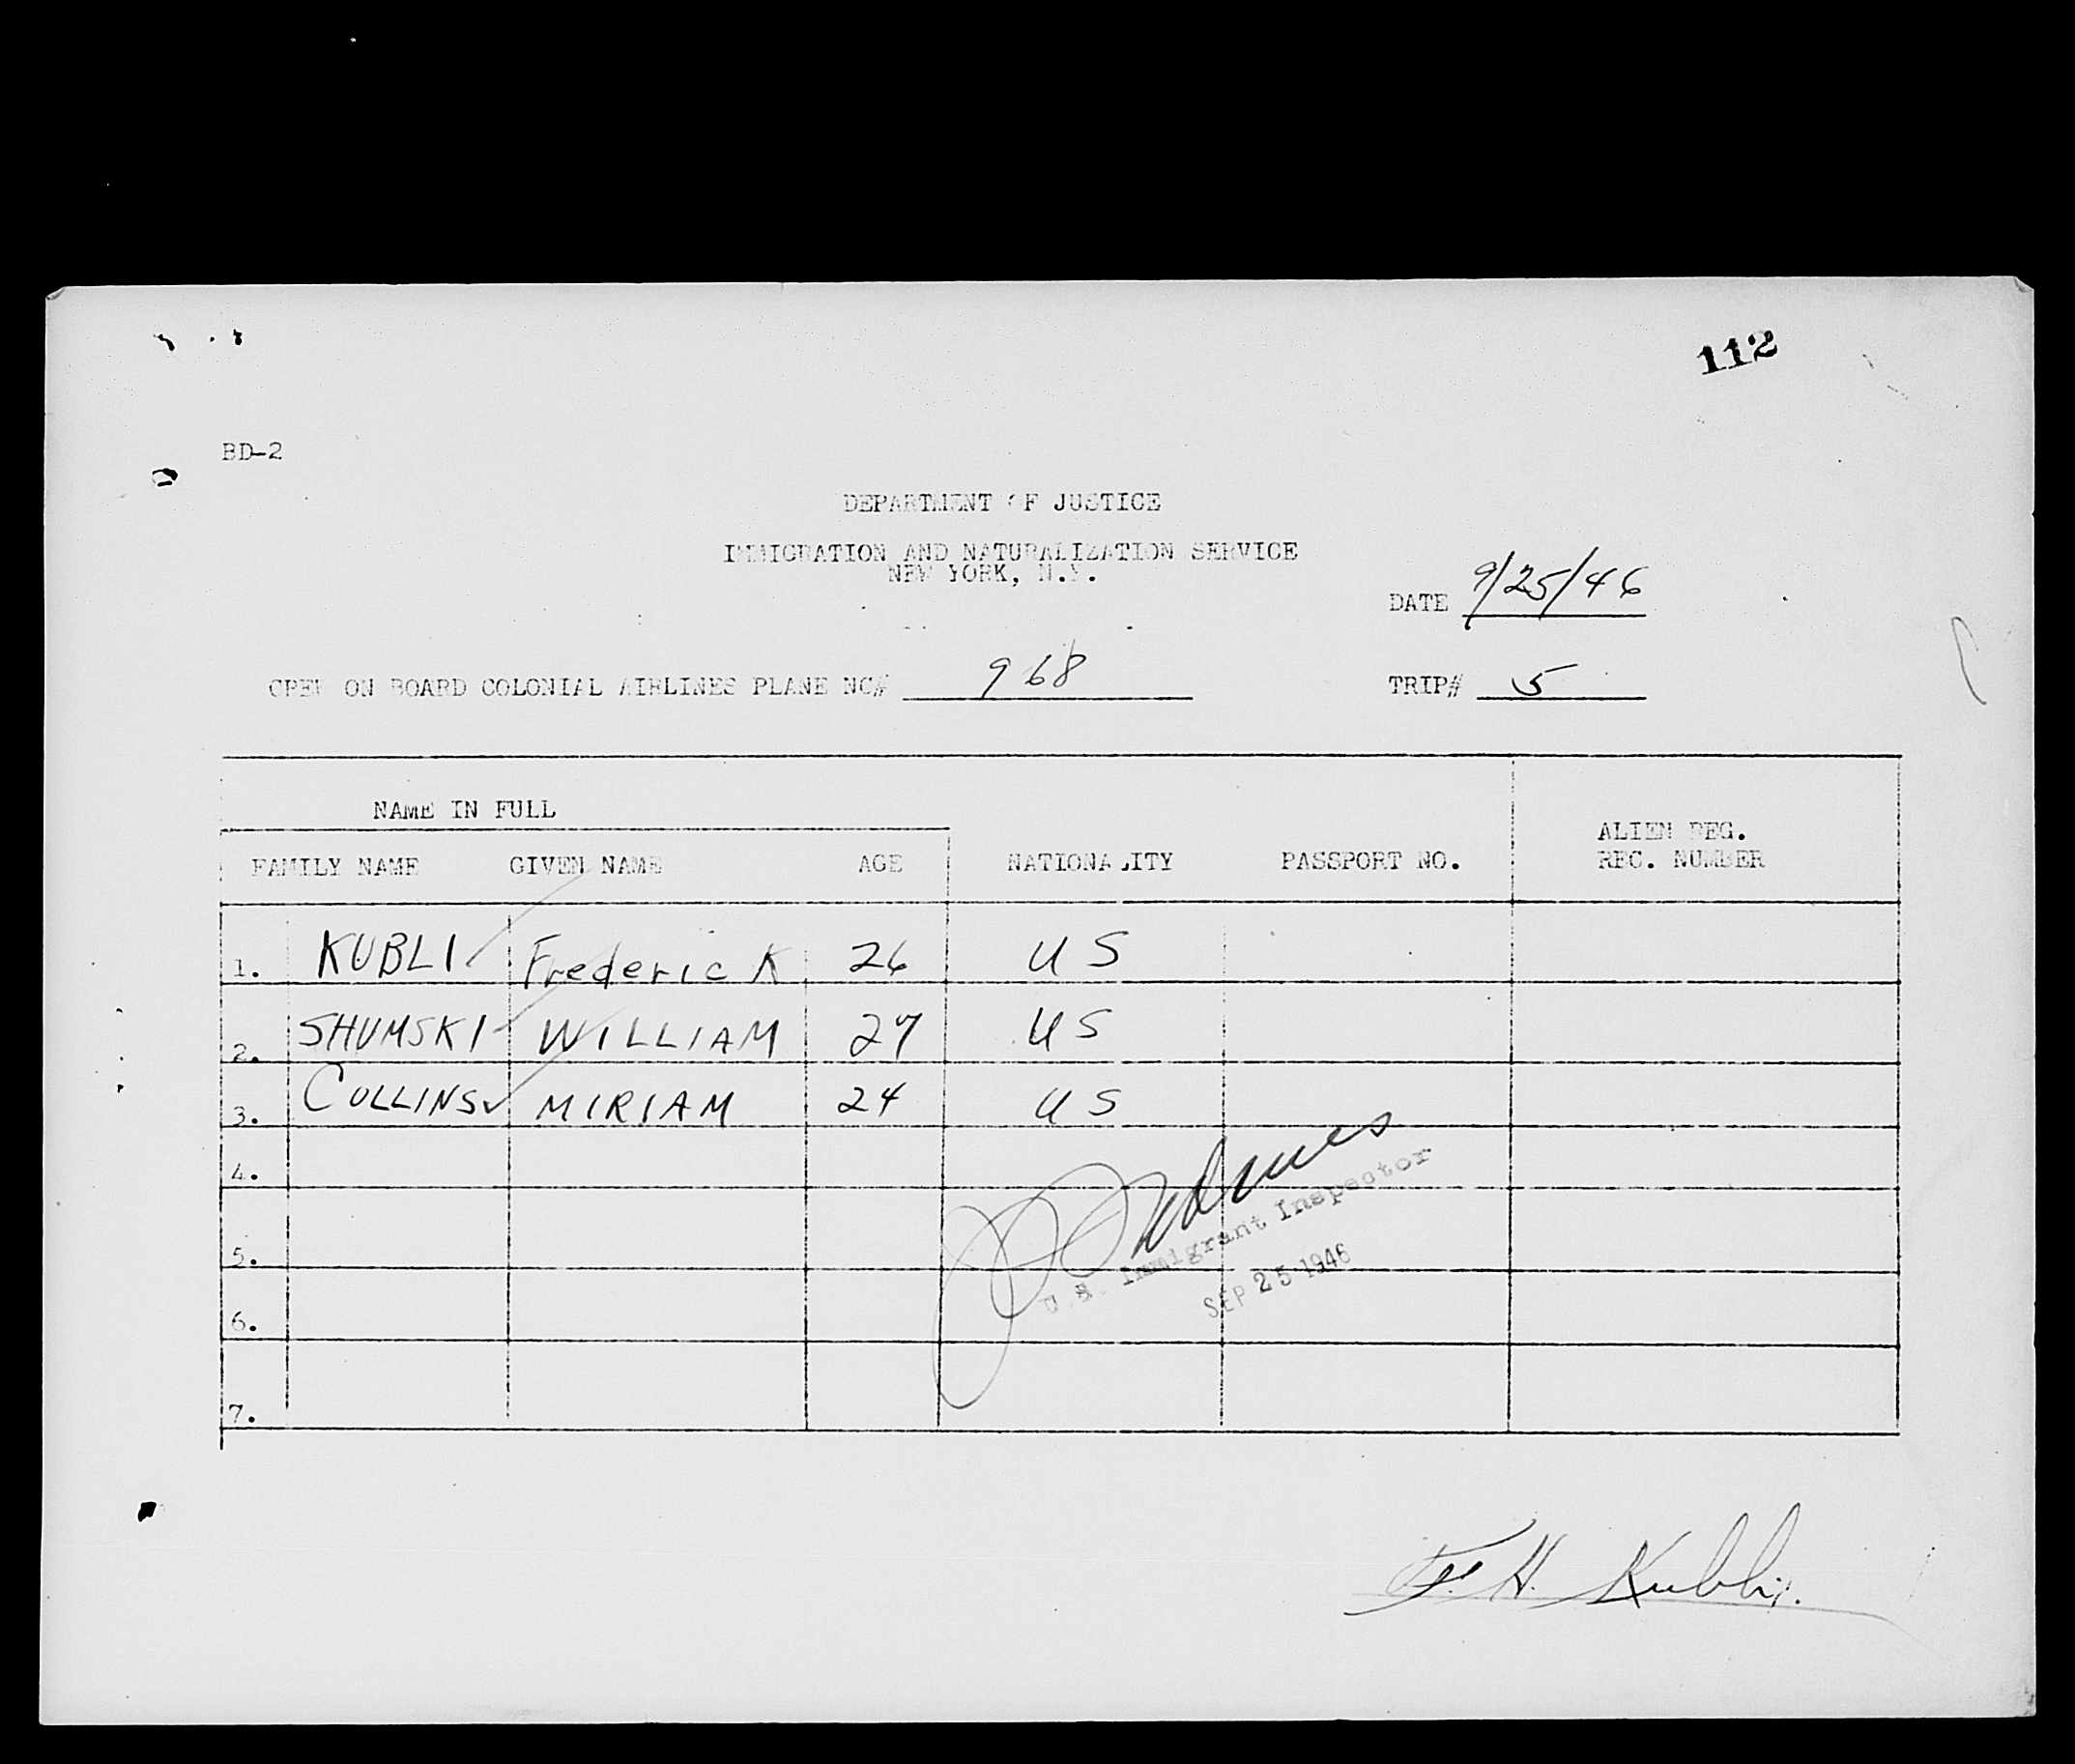 112
BD-2
DEPARTMENT OF JUSTICE
IMMIGRATION AND NATURALIZATION SERVICE
NEW YORK, N.Y.
DATE 9/25/46
CREW ON BOARD COLONIAL AIRLINES PLANE NC# 968 TRIP# 5
NAME IN FULL
FAMILY NAME GIVEN NAME AGE NATIONALITY PASSPORT NO. ALIEN REG.
REC. NUMBER
1. KUBLI Frederick 26 US
2. SHUMSKI WILLIAM 27 US
3. COLLINS MIRIAM 24 US
4.
U.S. Immigrant Inspector
5.
SEP 25 1946
6.
7.
F. H. Kubli.